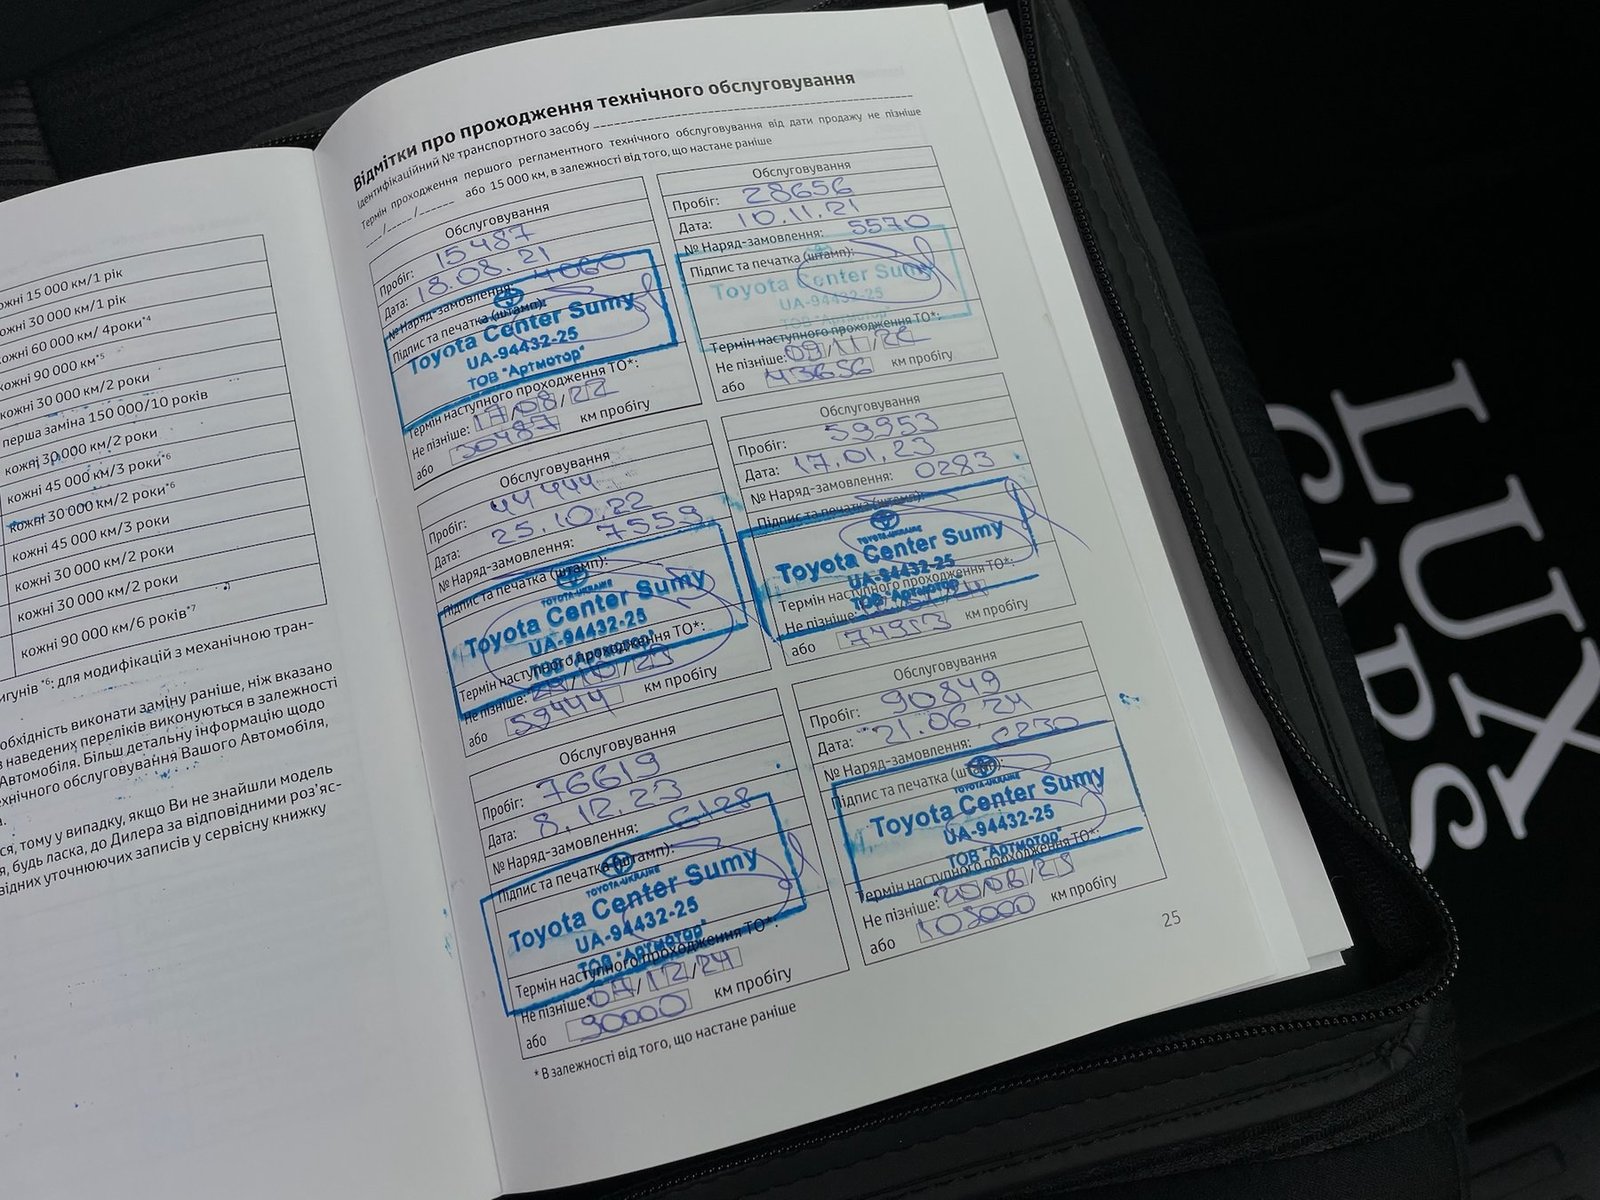 ожні 15 000 км/1 рік
ожні 30 000 км/1 рік
ожні 60 000 км/ 4роки*4
кожні 90 000 км*5
кожні 30 000 км/2 роки
перша заміна 150 000/10 років
кожні 30 000 км/2 роки
кожні 45 000 км/3 роки*6
кожні 30 000 км/2 роки*6
кожні 45 000 км/3 роки
кожні 30 000 км/2 роки
кожні 30 000 км/2 роки
кожні 90 000 км/6 років*7
игунів *6: для модифікацій з механічною тран-
обхідність виконати заміну раніше, ніж вказано
з наведених переліків виконуються в залежності
Автомобіля. Більш детальну інформацію щодо
ехнічного обслуговування Вашого Автомобіля,
а.
ся, тому у випадку, якщо Ви не знайшли модель
я, будь ласка, до Дилера за відповідними роз'яс-
відних уточнюючих записів у сервісну книжку
Відмітки про проходження технічного обслуговування
Ідентифікаційний № транспортного засобу
Термін проходження першого регламентного технічного обслуговування від дати продажу не пізніше
або 15 000 км, в залежності від того, що настане раніше
Обслуговування
Пробіг: 15487
Дата: 18.08.21
№ Наряд-замовлення: 4060
Підпис та печатка (штамп):
Toyota Center Sumy
UA-94432-25
ТОВ "Артмотор"
Термін наступного проходження ТО*:
Не пізніше: 17/08/22
або 30487 км пробігу
Обслуговування
Пробіг: 28656
Дата: 10.11.21
№ Наряд-замовлення: 5570
Підпис та печатка (штамп):
Toyota Center Sumy
UA-94432-25
ТОВ "Артмотор"
Термін наступного проходження ТО*:
Не пізніше: 09/11/22
або 43656 км пробігу
Обслуговування
Пробіг: 44444
Дата: 25.10.22
№ Наряд-замовлення: 7559
Підпис та печатка (штамп):
TOYOTA-UKRAINE
Toyota Center Sumy
UA-94432-25
ТОВ "Артмотор"
Термін наступного проходження ТО*:
Не пізніше: 24/10/23
або 59444 км пробігу
Обслуговування
Пробіг: 59953
Дата: 17.01.23
№ Наряд-замовлення: 0283
Підпис та печатка (штамп):
TOYOTA-UKRAINE
Toyota Center Sumy
UA-94432-25
ТОВ "Артмотор"
Термін наступного проходження ТО*:
Не пізніше:
або 74953 км пробігу
Обслуговування
Пробіг: 76619
Дата: 8.12.23
№ Наряд-замовлення: 6128
Підпис та печатка (штамп):
TOYOTA-UKRAINE
Toyota Center Sumy
UA-94432-25
ТОВ "Артмотор"
Термін наступного проходження ТО*:
Не пізніше: 07/12/24
або 90000 км пробігу
Обслуговування
Пробіг: 90849
Дата: 21.06.24
№ Наряд-замовлення:
Підпис та печатка (штамп):
TOYOTA-UKRAINE
Toyota Center Sumy
UA-94432-25
ТОВ "Артмотор"
Термін наступного проходження ТО*:
Не пізніше:
або 105000 км пробігу
* В залежності від того, що настане раніше
25
LUX
CARS